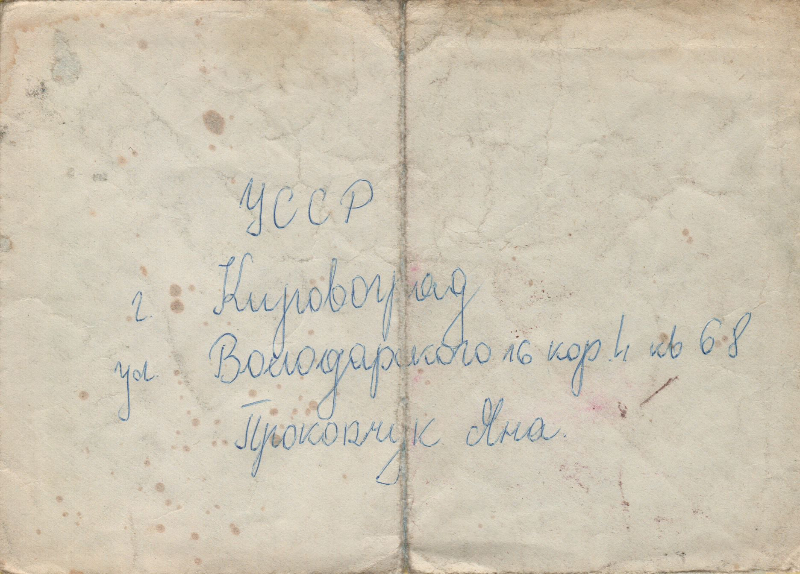 УССР
г. Кировоград
ул. Володарского 16 кор. 4 кв 68
Прокопчук Яна.